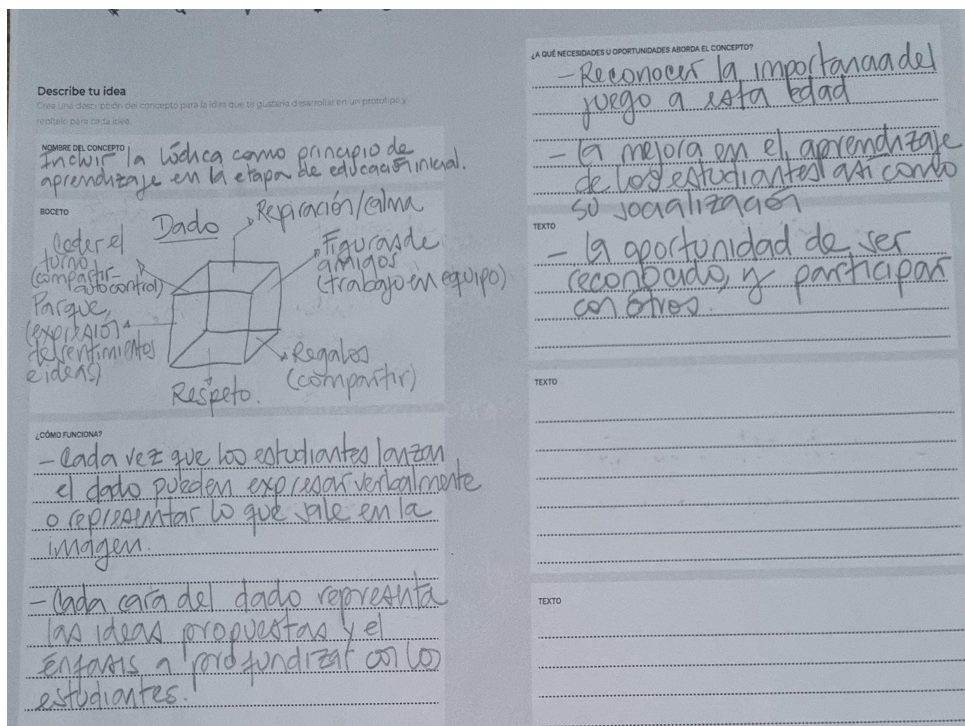 Describe tu idea
Crea una descripción del concepto para la idea que te gustaría desarrollar en un prototipo y
repítelo para cada idea.
NOMBRE DEL CONCEPTO
Incluir la lúdica como principio de
aprendizaje en la etapa de educación inicial.
BOCETO
Dado
Respiración/calma
Ceder el
turno
(compartir-
autocontrol)
Figuras de
amigos
(trabajo en equipo)
Parque,
(expresión
de sentimientos
e ideas)
Regalos
(compartir)
Respeto.
¿CÓMO FUNCIONA?
- Cada vez que los estudiantes lanzan
el dado pueden expresar verbalmente
o representar lo que sale en la
imagen.
- Cada cara del dado representa
las ideas propuestas y el
énfasis a profundizar con los
estudiantes.
¿A QUÉ NECESIDADES U OPORTUNIDADES ABORDA EL CONCEPTO?
- Reconocer la importancia del
juego a esta edad
- la mejora en el aprendizaje
de los estudiantes así como
su socialización
TEXTO
- la oportunidad de ser
reconocido, y participar
con otros.
TEXTO
TEXTO